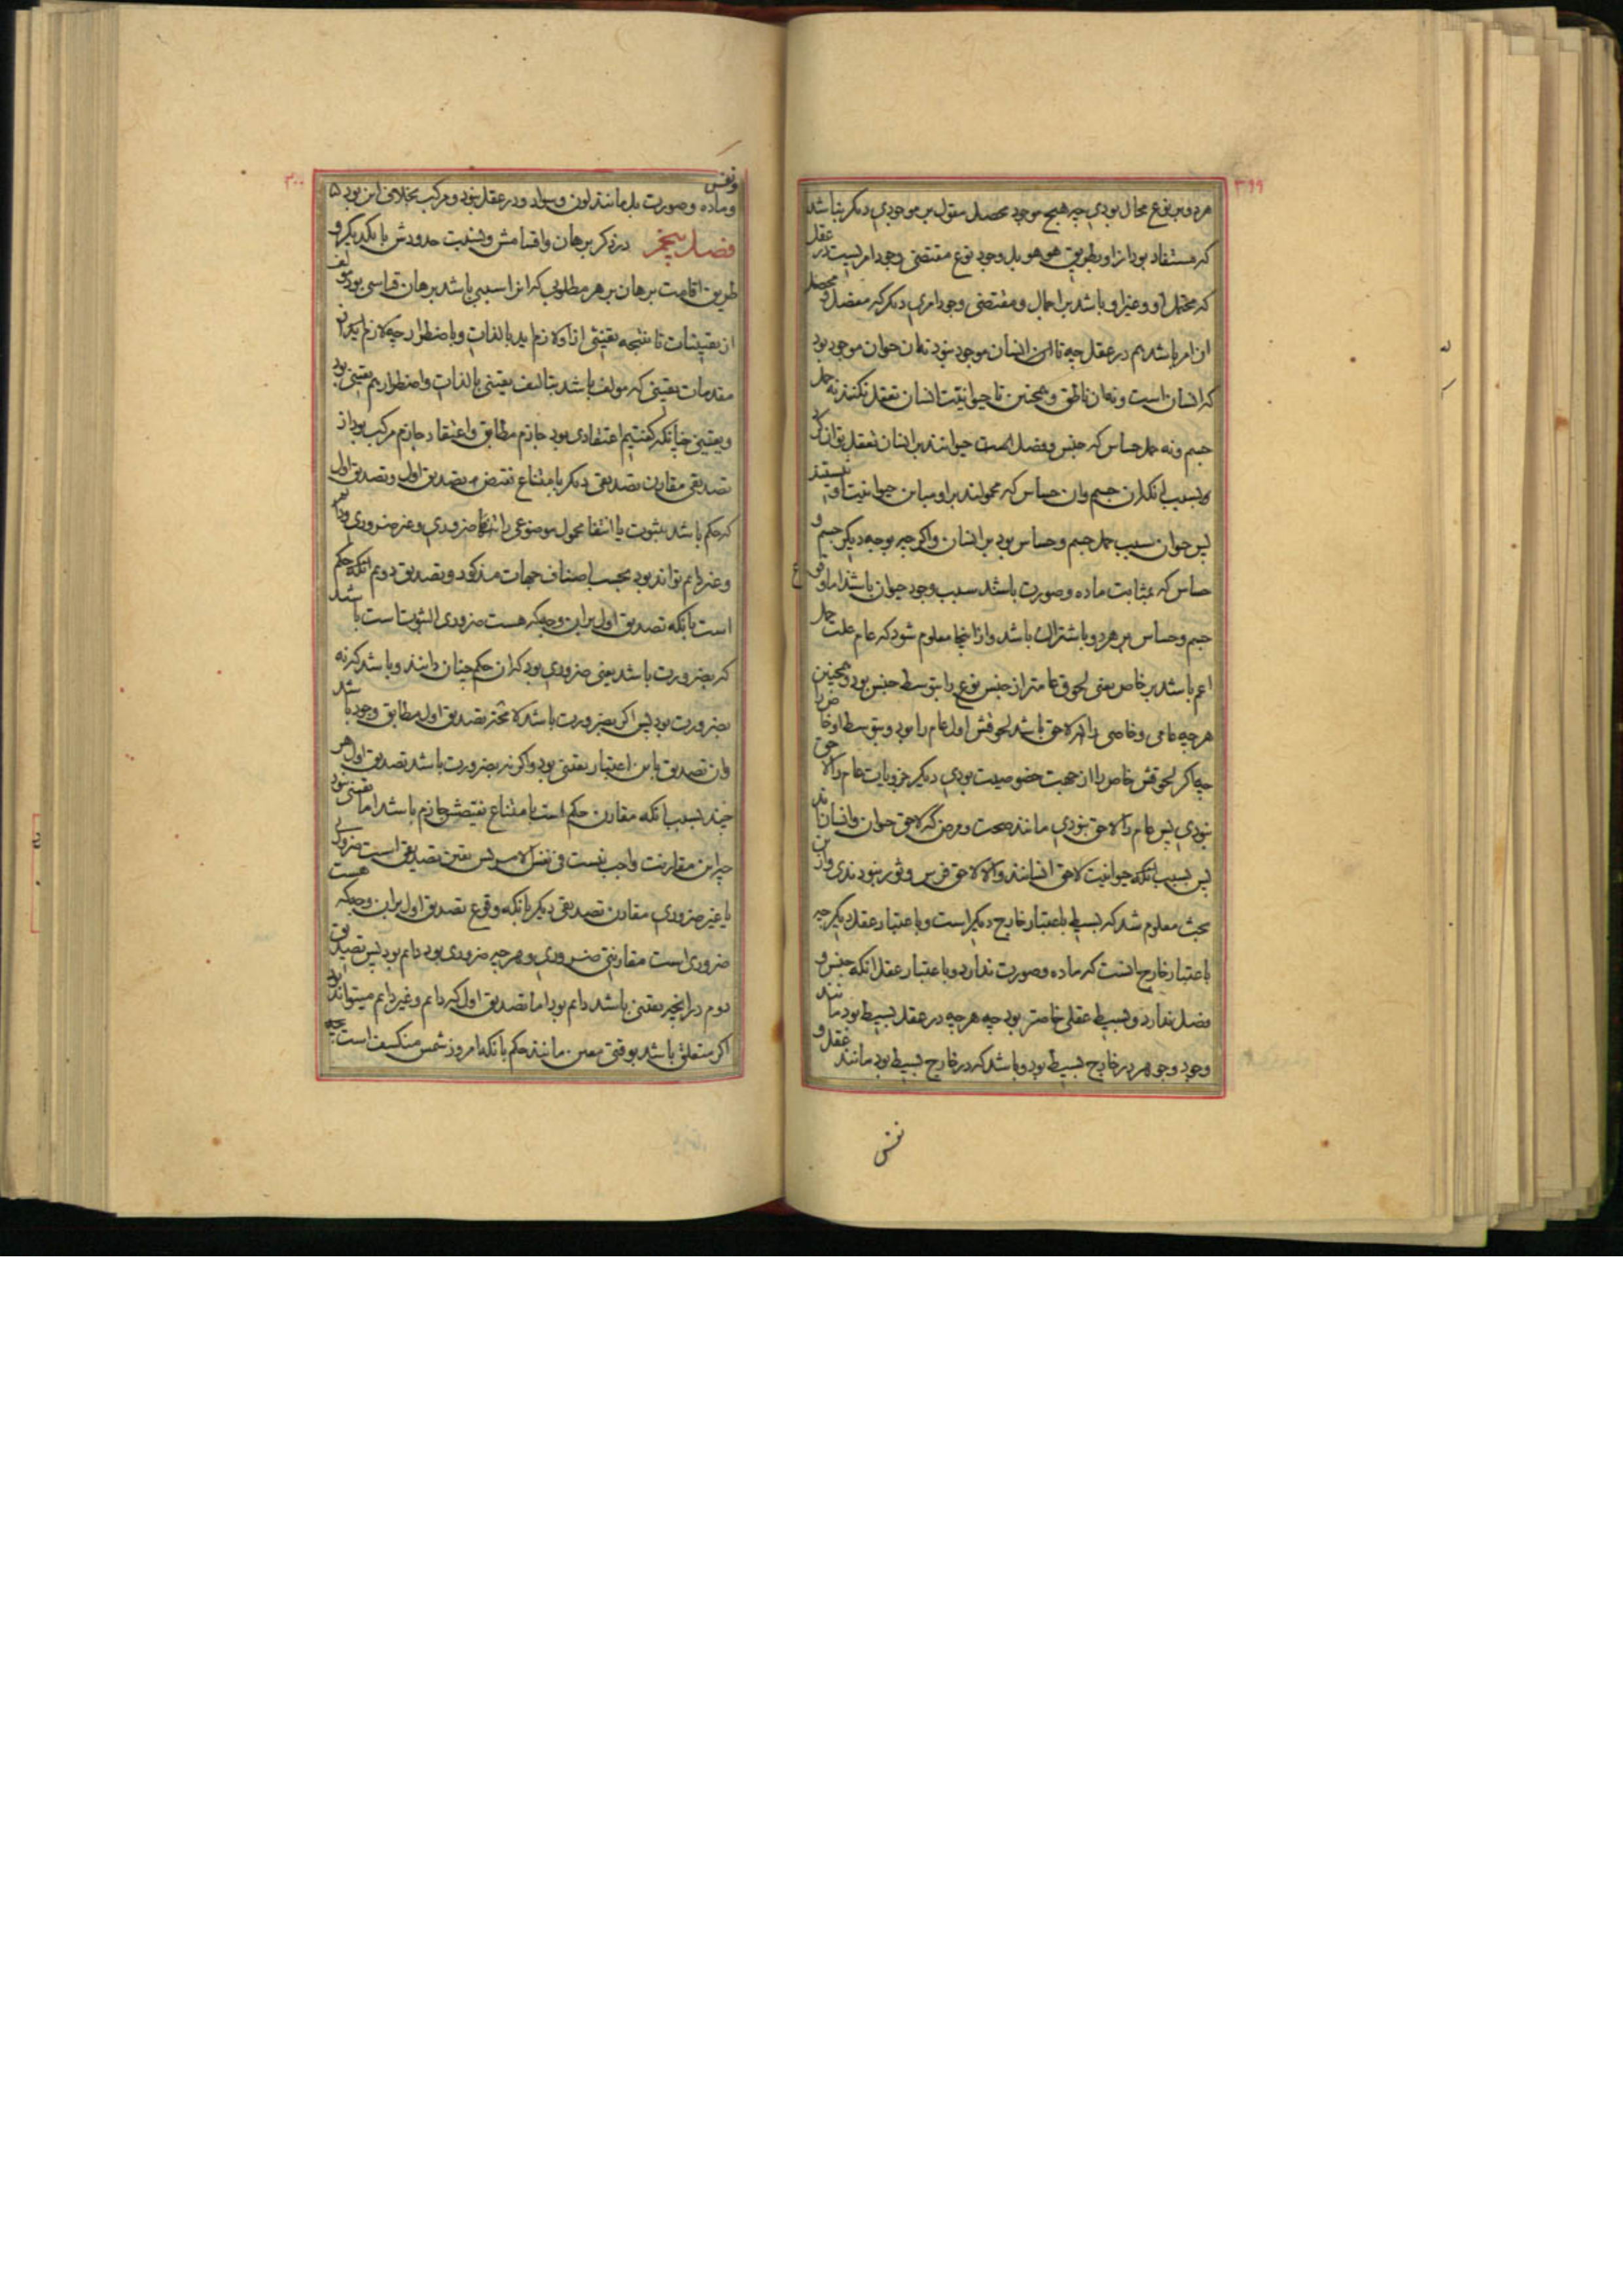 ۳۹۹
هر دو بر نوع محال بودی چه هیچ موجود محصل مقول بر موجودی دیکر نباشد
که مستفاد بود ازاو بطریق هو هو بل وجود نوع مقتضی وجود امریست در عقل
که محتمل او و غیر او باشد بر اجمال و مقتضی وجود امری دیکر که مفصل و محصل
ان امر باشد هم در عقل چه تا این انسان موجود نبود نه ان حیوان موجود بود
که انسان است و نه ان ناطق و همچنین تا حیوانیت انسان تعقل نکنند نه حمل
جسم و نه حمل حساس که جنس و فصل است حیوانند بر انسان تعقل توان کرد
و بسبب انکه ان جسم وان حساس که محمولند بر او مباین حیوانیت او نیستند
پس حیوان سبب حمل جسم و حساس بود بر انسان و اکر چه بوجه دیکر جسم و
حساس که بمثابت ماده و صورت باشند سبب وجود حیوان باشند اما وقوع
جسم و حساس بر هر دو باشتراک باشد و ازاینجا معلوم شود که عام علت حمل
اعم باشد بر خاص یعنی لحوق عامتر از جنس نوع را بتوسط جنس بود و همچنین
هر چه عامی و خاصی را لاحق باشد لحوقش اول عام را بود و بتوسط او خاص را
چه اکر لحوقش خاص را از جهت خصوصیت بودی دیکر جزویات عام را لاحق
نبودی پس عام را لاحق نبودی مانند صحت و مرض که لاحق حیوان و انسانند
پس بسبب انکه حیوانیت لاحق انسانند والا لاحق فرس و ثور نبودندی و ازین
بحث معلوم شد که بسیط باعتبار خارج دیکر است و باعتبار عقل دیکر چه
باعتبار خارج انست که ماده و صورت ندارد و باعتبار عقل انکه جنس و
فصل ندارد و بسیط عقلی خاصتر بود چه هر چه در عقل بسیط بود مانند
وجود و جوهر در خارج بسیط بود و باشد که در خارج بسیط بود مانند عقل و
نفس
۳۰۰
ونفس
و ماده و صورت بل مانند لون و سواد و در عقل نبود و مرکب بخلاف این بود
فصل پنجم در ذکر برهان و اقسامش و نسبت حدودش با یکدیکر و
طریق اقامت برهان بر هر مطلوبی که انرا سببی باشد برهان قیاسی بود مولف
از یقینیات تا نتیجه یقینی ازاو لازم اید بالذات و باضطرار چه لازم
مقدمات یقینی که مولف باشد بتالیف یقینی بالذات و اضطرار هم یقینی بود
و یقینی چنانکه کفتیم اعتقادی بود جازم مطابق و اعتقاد جازم مرکب بود از
تصدیقی مقارن تصدیقی دیکر بامتناع نقیض تصدیق اول و تصدیق اول
که حکم باشد بثبوت یا انتفا محمول موضوعی را ضروری و غیر ضروری و دایم
و غیر دایم تواند بود بحسب اصناف جهات مذکور و تصدیق دویم انکه حکم
است بانکه تصدیق اول بر ان وجه که هست ضروری الثبوتست باشد
که بضرورت باشد یعنی ضروری بود که ان حکم چنان دانند و باشد که نه
بضرورت بود پس اکر بضرورت باشد لامحه تصدیق اول مطابق وجود باشد
وان تصدیق باین اعتبار یقینی بود و اکر نه بضرورت باشد تصدیق اول هر
چند بسبب انکه مقارن حکم است بامتناع نقیضش جازم باشد اما یقینی نبود
چه این مقارنت واجب نیست فی نفس الامر پس یقین تصدیقی است ضروری
یا غیر ضروری مقارن تصدیقی دیکر بانکه وقوع تصدیق اول بر ان وجه که هست
ضروری است مقارنتی ضروری و هر چه ضروری بود دایم بود پس تصدیق
دوم در انچه یقینی باشد دایم بود اما تصدیق اول که دایم و غیر دایم میتواند بود
اکر متعلق باشد بوقتی معین مانند حکم بانکه امروز شمس منکسف است